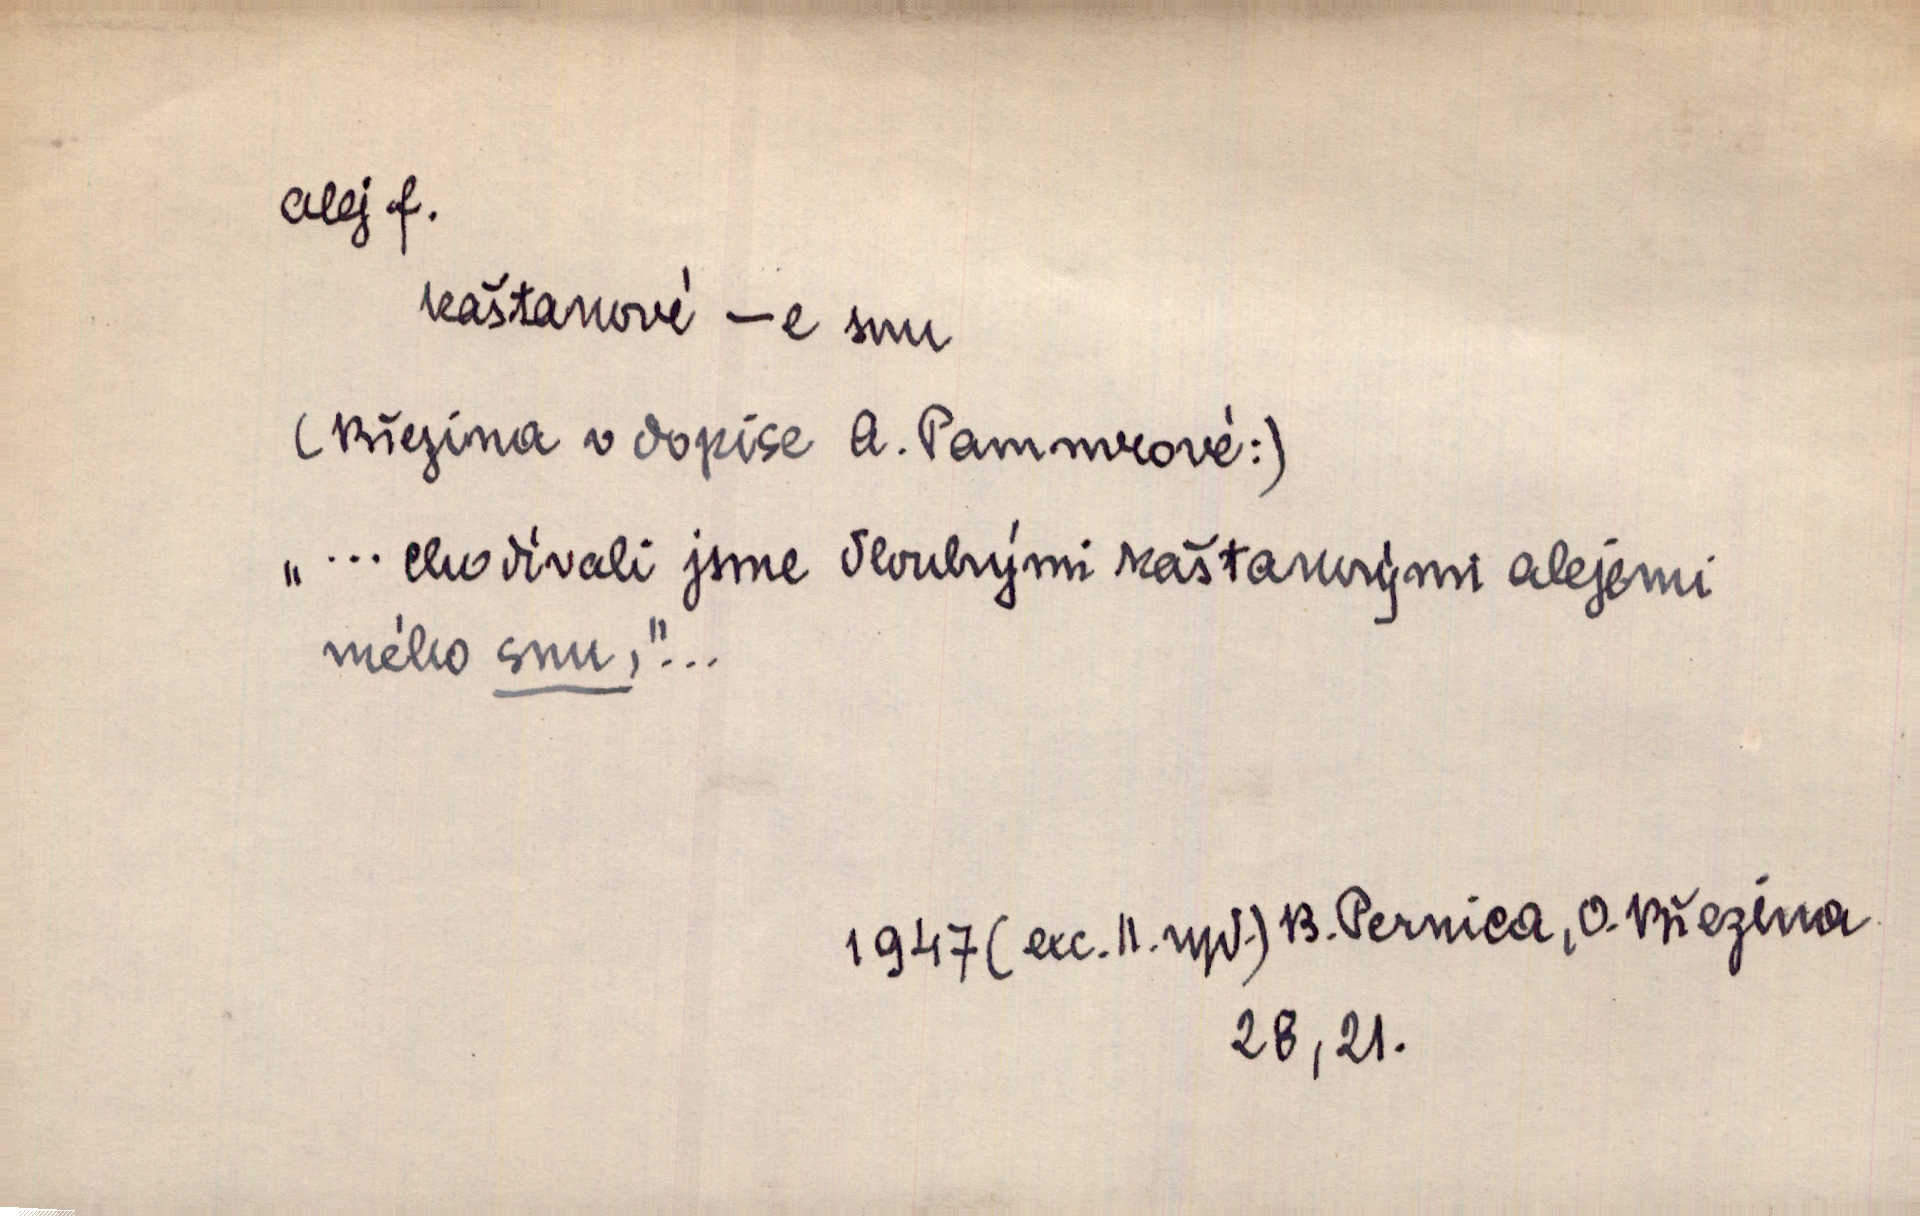 alej f.
kaštanové — e snu
(Březina v dopise A. Pammrové:)
„... chodívali jsme dlouhými kaštanovými alejemi
mého snu,"...
1947 (exc. II. vyd.) B. Pernica, O. Březina
28, 21.